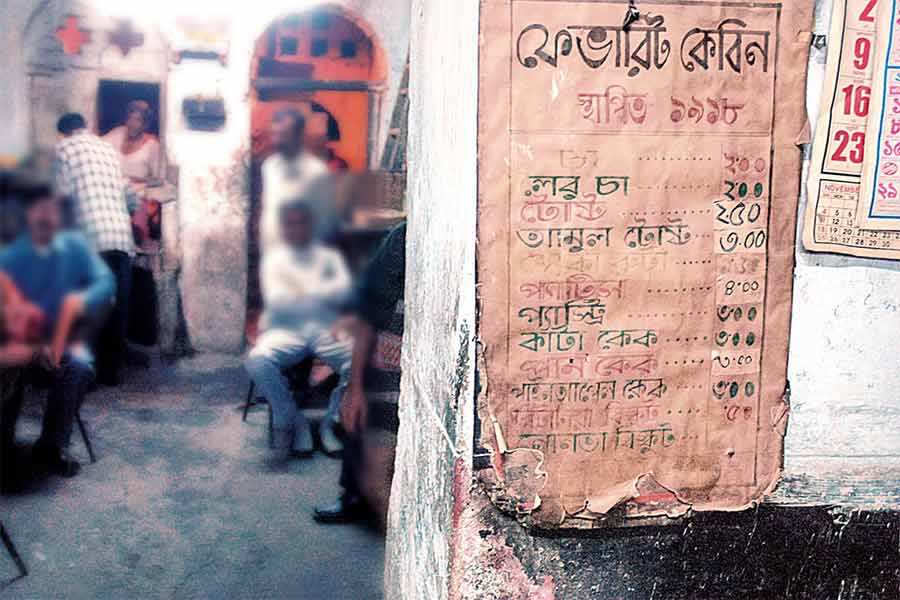 ফেভারিট কেবিন
স্থাপিত ১৯১৮
চা ........ ২০০
লেবু চা ........ ২০০
টোস্ট ........ ২৫০
আমুল টোস্ট .... ৩.০০
প্যাটিস ........ ৪.০০
প্যাস্ট্রি ........ ৩০০
কাটা কেক ..... ৩০০
প্লাম কেক ..... ৩.০০
কেক .... ৩০০
বিস্কুট .... .৫০
নোনতা বিস্কুট ...
2
9
16
23
NOVEMBER